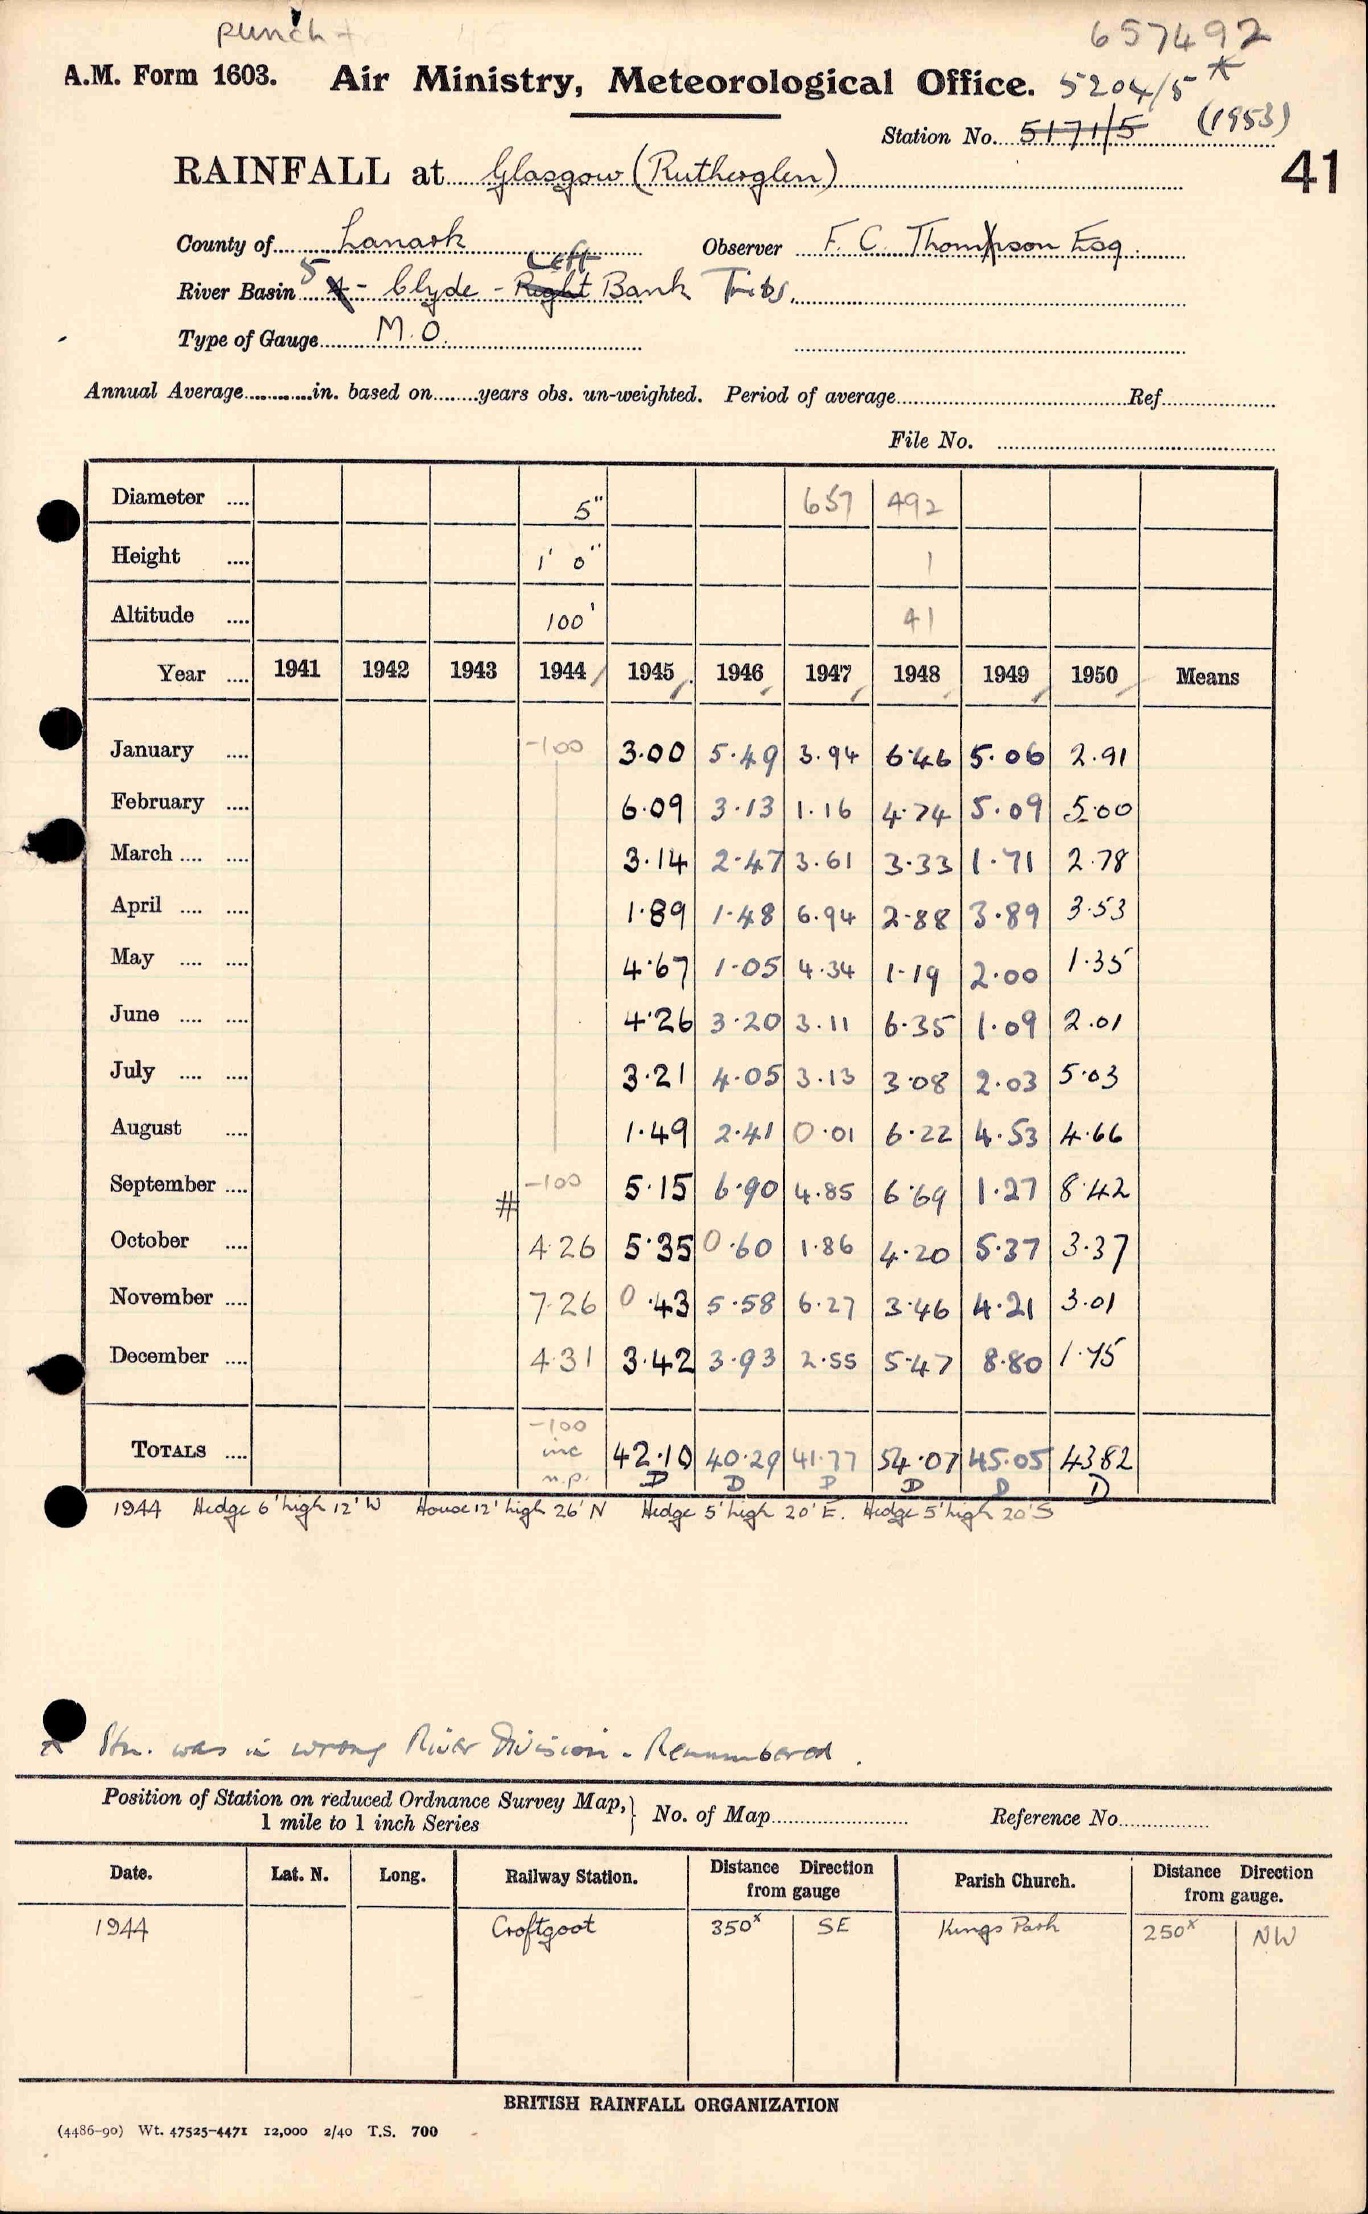 punch
657492
A.M. Form 1603. Air Ministry, Meteorological Office. 5204/5 *
Station No. 5171/5 (1953)
41
RAINFALL at Glasgow (Rutherglen)
County of Lanark Observer F. C. Thomson Esq.
Left
River Basin 5 - Clyde - Right Bank Tribs.
Type of Gauge M.O.
Annual Average in. based on years obs. un-weighted. Period of average Ref
File No.
Diameter 5" 657 492
Height 1' 0" 1
Altitude 100' 41
Year 1941 1942 1943 1944 1945 1946 1947 1948 1949 1950 Means
January -100 3.00 5.49 3.94 6.46 5.06 2.91
February 6.09 3.13 1.16 4.74 5.09 5.00
March 3.14 2.47 3.61 3.33 1.71 2.78
April 1.89 1.48 6.94 2.88 3.89 3.53
May 4.67 1.05 4.34 1.19 2.00 1.35
June 4.26 3.20 3.11 6.35 1.09 2.01
July 3.21 4.05 3.13 3.08 2.03 5.03
August 1.49 2.41 0.01 6.22 4.53 4.66
September -100 5.15 6.90 4.85 6.69 1.27 8.42
#
October 4.26 5.35 0.60 1.86 4.20 5.37 3.37
November 7.26 0.43 5.58 6.27 3.46 4.21 3.01
December 4.31 3.42 3.93 2.55 5.47 8.80 1.75
-100
TOTALS inc 42.10 40.29 41.77 54.07 45.05 43.82
n.p. D D D D D D
1944 Hedge 6' high 12' W House 12' high 26' N Hedge 5' high 20' E. Hedge 5' high 20' S
* Stn. was in wrong River Division - Renumbered.
Position of Station on reduced Ordnance Survey Map,
1 mile to 1 inch Series } No. of Map Reference No
Date. Lat. N. Long. Railway Station. Distance Direction from gauge Parish Church. Distance Direction from gauge.
1944 Croftfoot 350x SE Kings Park 250x NW
BRITISH RAINFALL ORGANIZATION
(4486-90) Wt. 47525-4471 12,000 2/40 T.S. 700